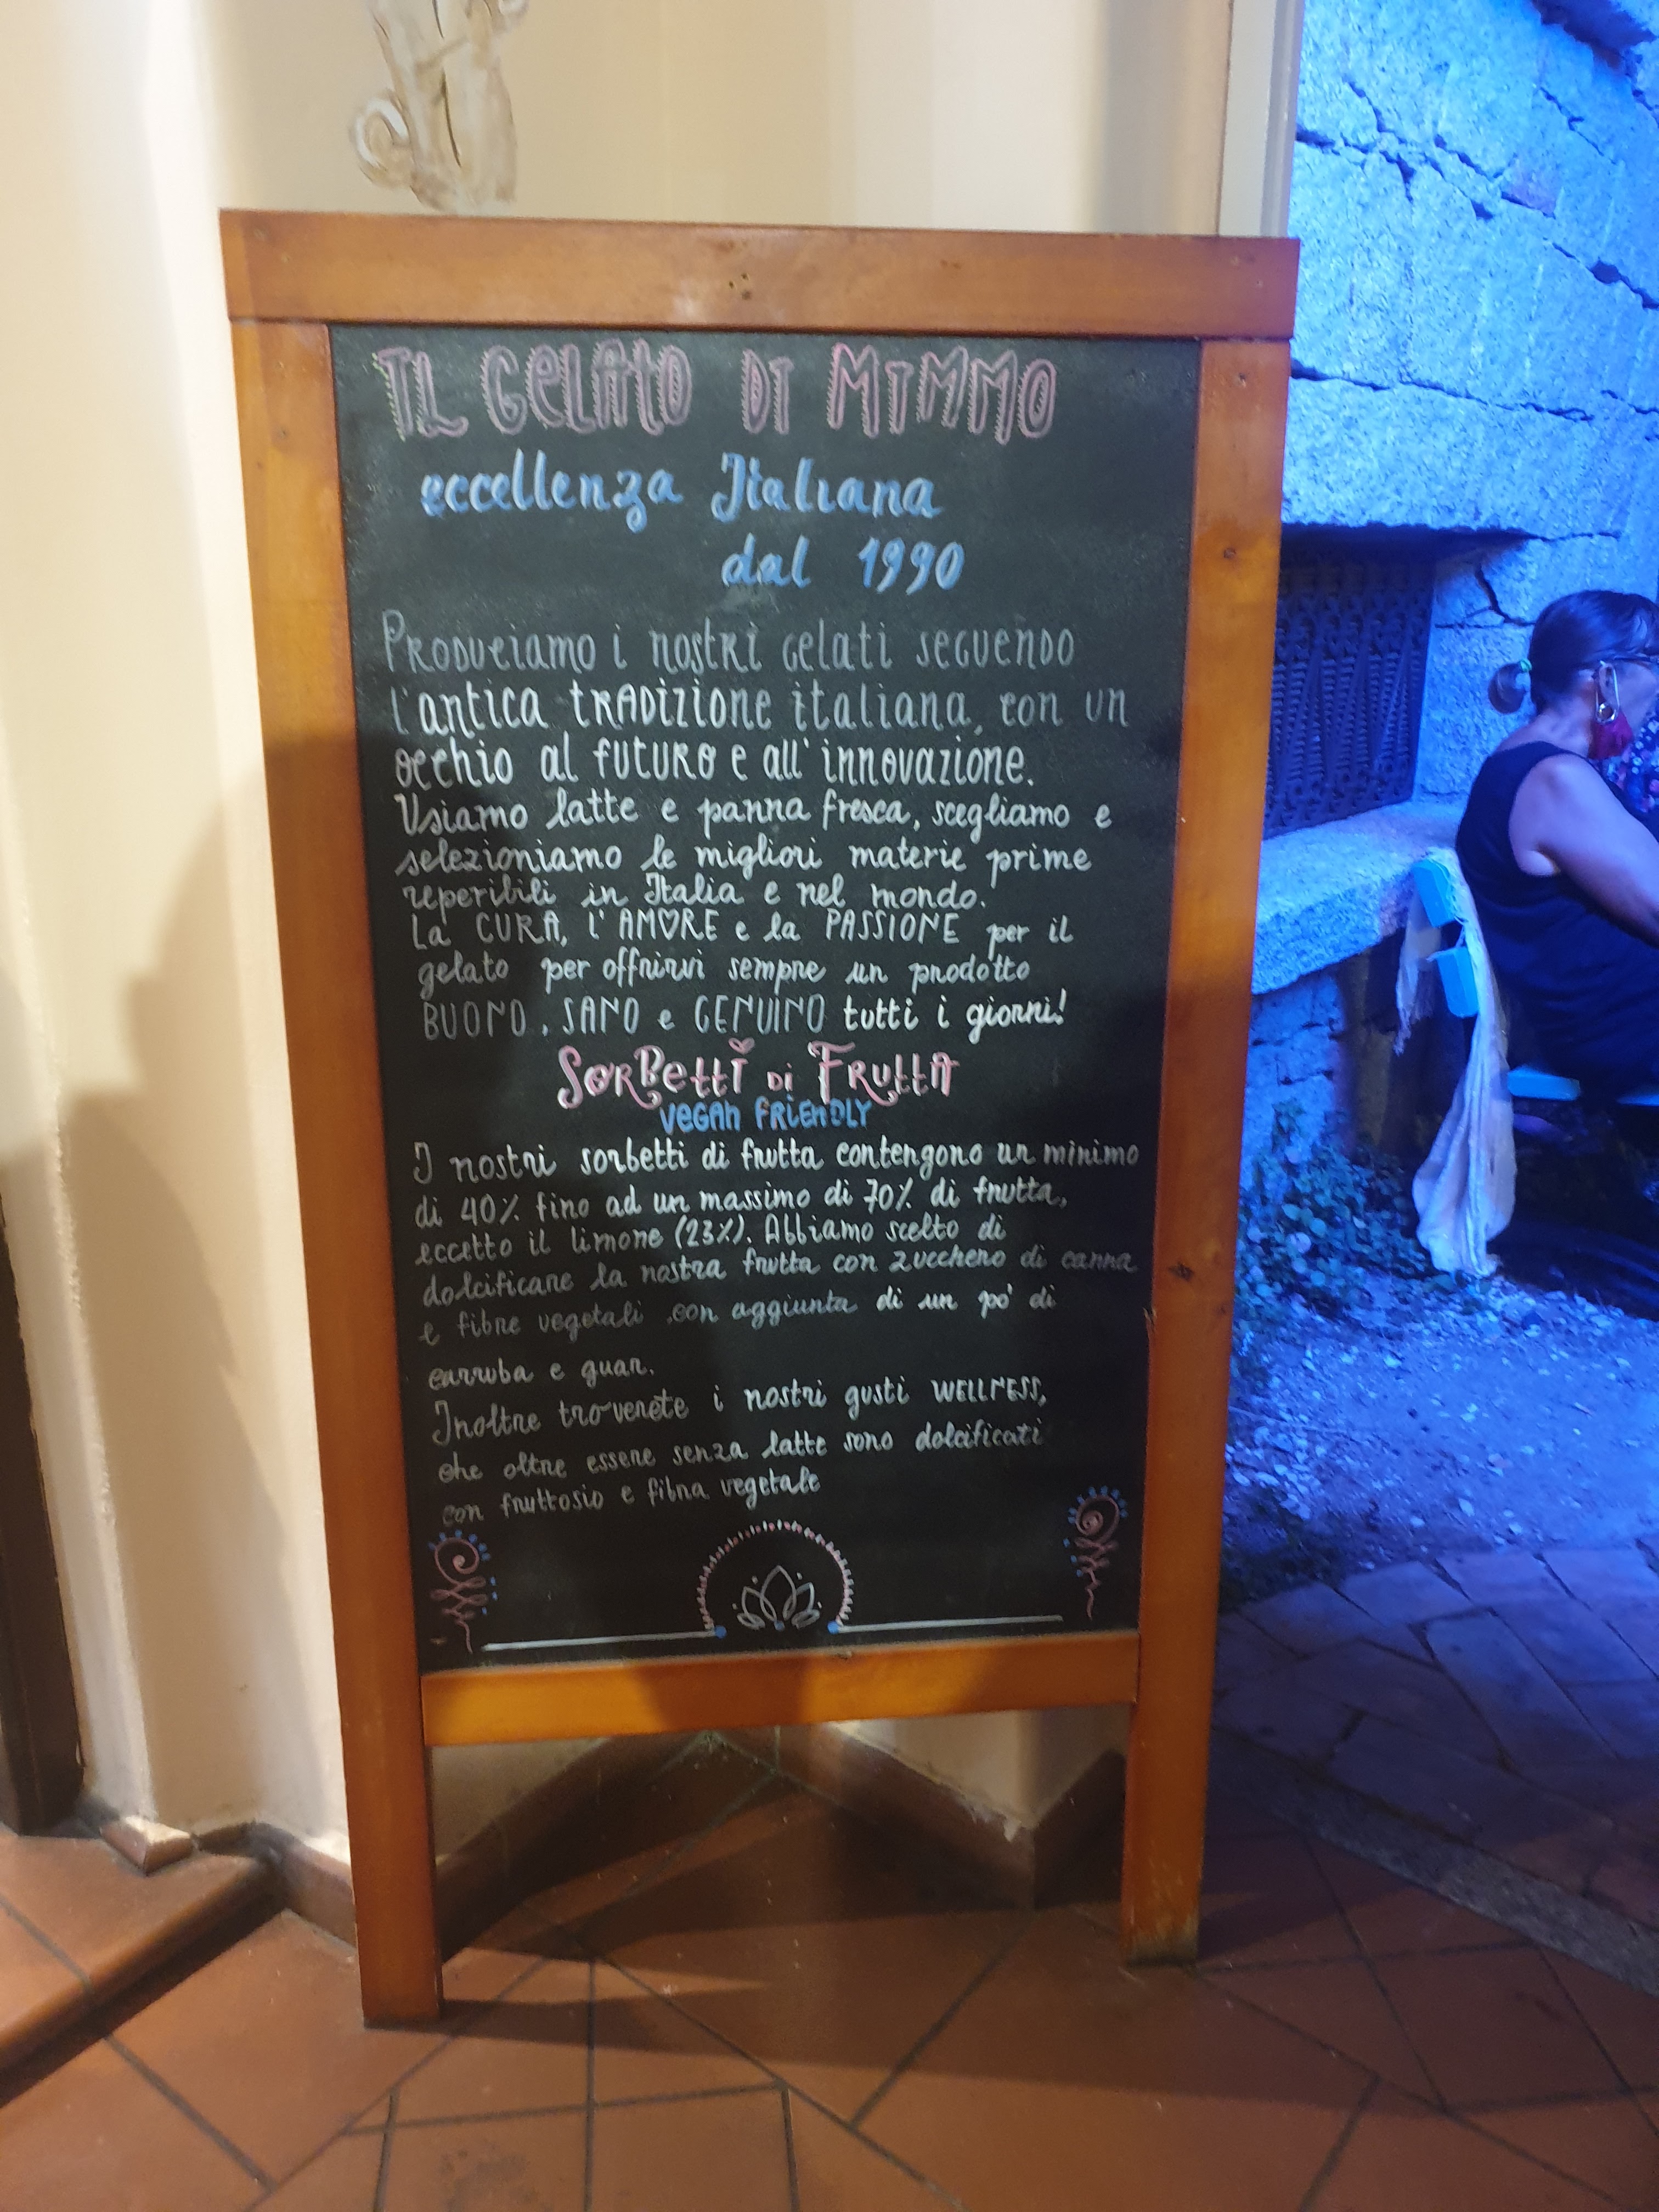 IL GELATO DI MIMMO
eccellenza Italiana
dal 1990
PRODUCIAMO i nostri gelati seguendo
l'antica tradizione italiana, con un
occhio al futuro e all'innovazione.
Usiamo latte e panna fresca, scegliamo e
selezioniamo le migliori materie prime
reperibili in Italia e nel mondo.
La CURA, l'AMORE e la PASSIONE per il
gelato per offrirvi sempre un prodotto
BUONO, SANO e GENUINO tutti i giorni!
SORBETTI DI FRUTTA
VEGAN FRIENDLY
I nostri sorbetti di frutta contengono un minimo
di 40% fino ad un massimo di 70% di frutta,
eccetto il limone (23%). Abbiamo scelto di
dolcificare la nostra frutta con zucchero di canna
e fibre vegetali, con aggiunta di un pò di
carruba e guar.
Inoltre troverete i nostri gusti WELLNESS,
che oltre essere senza latte sono dolcificati
con fruttosio e fibra vegetale